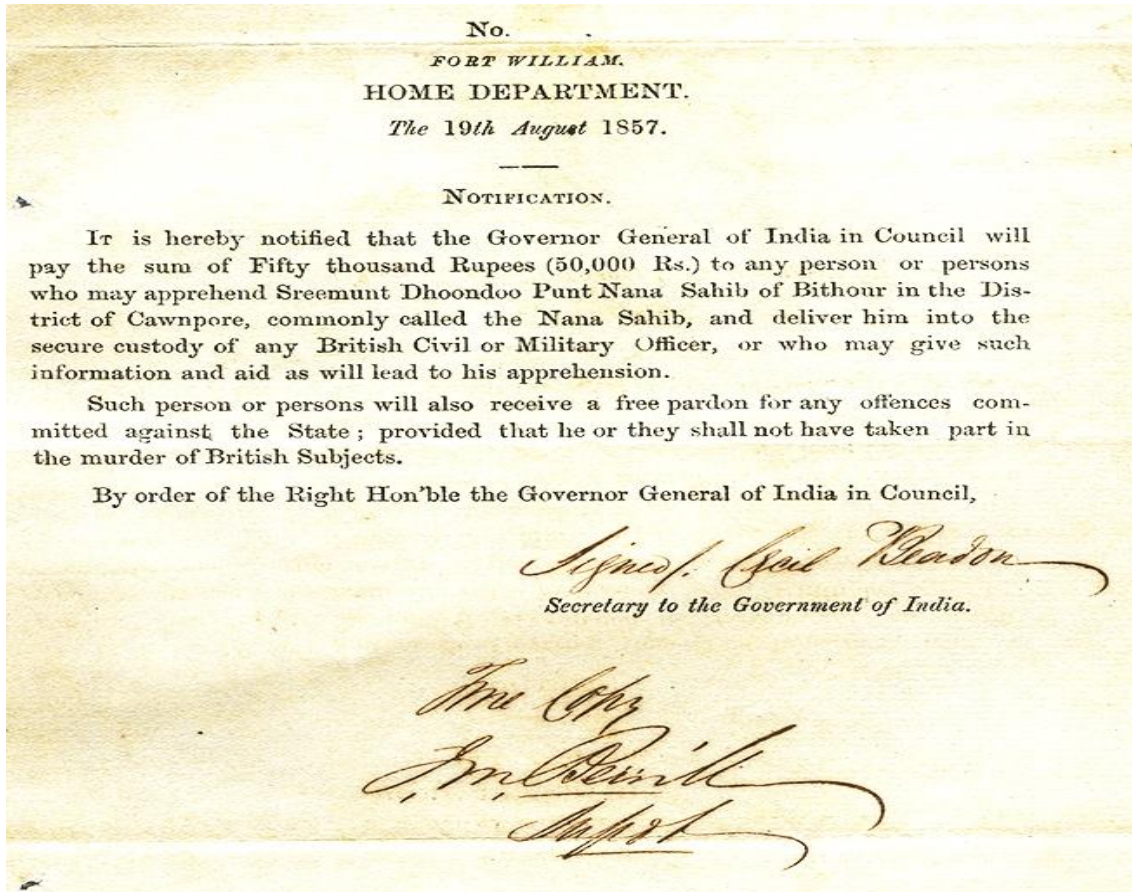 No.
FORT WILLIAM.
HOME DEPARTMENT.
The 19th August 1857.
NOTIFICATION.
IT is hereby notified that the Governor General of India in Council will
pay the sum of Fifty thousand Rupees (50,000 Rs.) to any person or persons
who may apprehend Sreemunt Dhoondoo Punt Nana Sahib of Bithour in the Dis-
trict of Cawnpore, commonly called the Nana Sahib, and deliver him into the
secure custody of any British Civil or Military Officer, or who may give such
information and aid as will lead to his apprehension.
Such person or persons will also receive a free pardon for any offences com-
mitted against the State; provided that he or they shall not have taken part in
the murder of British Subjects.
By order of the Right Hon'ble the Governor General of India in Council,
Signed/. Cecil Beadon
Secretary to the Government of India.
True Copy